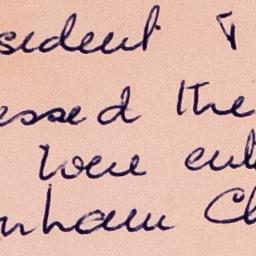 sident &
essed the
were ent
nham Ch